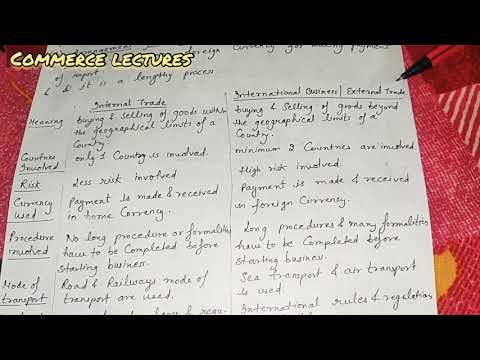 COMMERCE LECTURES
Currency for making payment
of import
& it is a lengthy process
Internal Trade
International Business | External Trade
Meaning
buying & selling of goods within
the geographical limits of a
Country.
buying & Selling of goods beyond
the geographical limits of a
Country.
Countries
Involved
only 1 Country is involved.
minimum 2 Countries are involved
Risk
Less risk involved
High risk involved.
Currency
used
Payment is made & received
in home Currency.
Payment is made & received
in foreign Currency.
Procedure
involved
No long procedure or formalities
have to be Completed before
starting business.
Long procedures & many formalities
have to be Completed before
starting business.
Mode of
transport
Road & Railways mode of
transport are used.
Sea transport & air transport
is used.
International rules & regulations